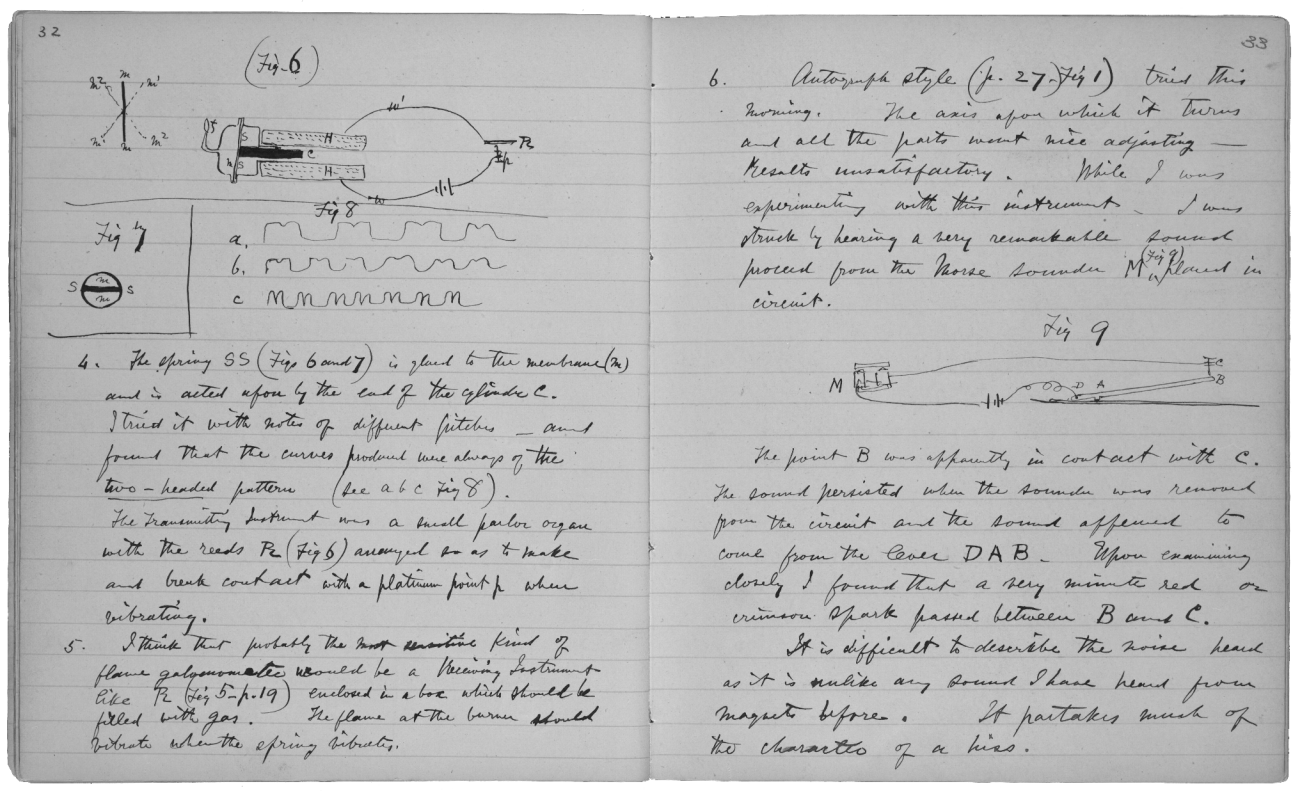 32
(Fig. 6)
m
m² m'
m' m m²
f S H W' R
n S C p
H
W
Fig 7
S m S
m
Fig 8
a.
b.
c
4. The spring SS (Figs 6 and 7) is glued to the membrane (m)
and is acted upon by the end of the cylinder C.
I tried it with notes of different pitches — and
found that the curves produced were always of the
two-headed pattern (see a b c Fig 8).
The Transmitting Instrument was a small parlor organ
with the reeds R (Fig 6) arranged so as to make
and break contact with a platinum point p when
vibrating.
5. I think that probably the most sensitive kind of
flame galvanometer would be a Receiving Instrument
like R (Fig 5-p. 19) enclosed in a box which should be
filled with gas. The flame at the burner should
vibrate when the spring vibrates.
33
6. Autograph style (p. 27-Fig 1) tried this
morning. The axis upon which it turns
and all the parts want nice adjusting —
Results unsatisfactory. While I was
experimenting with this instrument — I was
struck by hearing a very remarkable sound
proceed from the Morse sounder M (Fig 9) placed in
circuit.
Fig 9
M D A C
B
The point B was apparently in contact with C.
The sound persisted when the sounder was removed
from the circuit and the sound appeared to
come from the lever DAB — Upon examining
closely I found that a very minute red or
crimson spark passed between B and C.
It is difficult to describe the noise heard
as it is unlike any sound I have heard from
magnets before. It partakes much of
the character of a hiss.